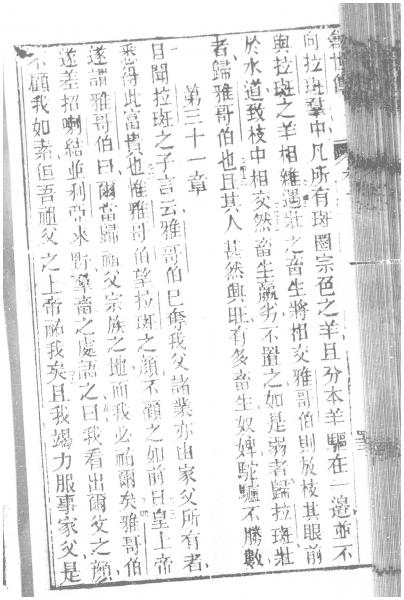 創世傳
向拉班羣中凡所有斑圈宗色之羊且分本羊驅在一邉並不
與拉班之羊相雜遇壯之畜生將相交雅哥伯則放枝其眼前
於水道致枝中相交然畜生羸劣不置之如是弱者歸拉班壯
者歸雅哥伯也且其人甚然興旺有多畜生奴婢駝驢不勝數
第三十一章
一日聞拉班之子言云雅哥伯已奪我父諸業亦由家父所有者
悉得此富貴也惟雅哥伯望拉班之顏不顧之如前日皇上帝
遂謂雅哥伯曰爾當歸祖父宗族之地而我必祐爾矣雅哥伯
遂差招喇結並利亞來野羣畜之處語之曰我看出爾父之顏
不顧我如素但吾祖父之上帝祐我矣且我竭力服事家父是